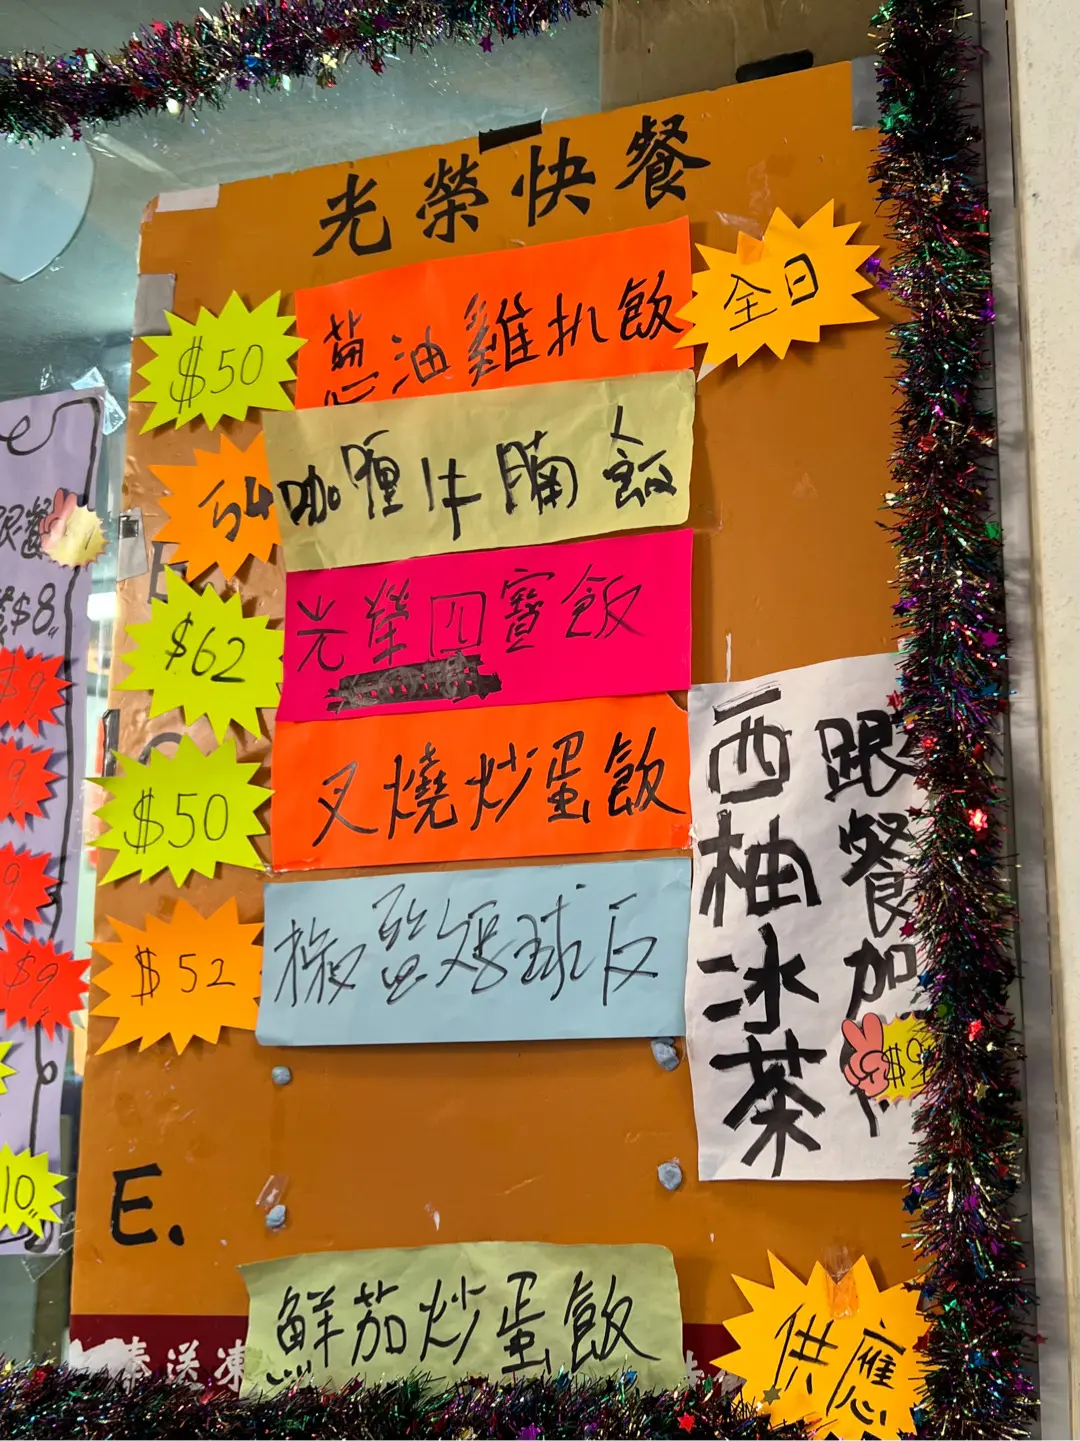 光榮快餐
全日
$50 葱油雞扒飯
54 咖喱牛腩飯
$62 光榮四寶飯
$50 叉燒炒蛋飯
$52 椒鹽雞球反
跟餐加
西柚冰茶
$9
E.
鮮茄炒蛋飯
供應
奉送凍
跟餐
$8
$9
9
9
$9
10